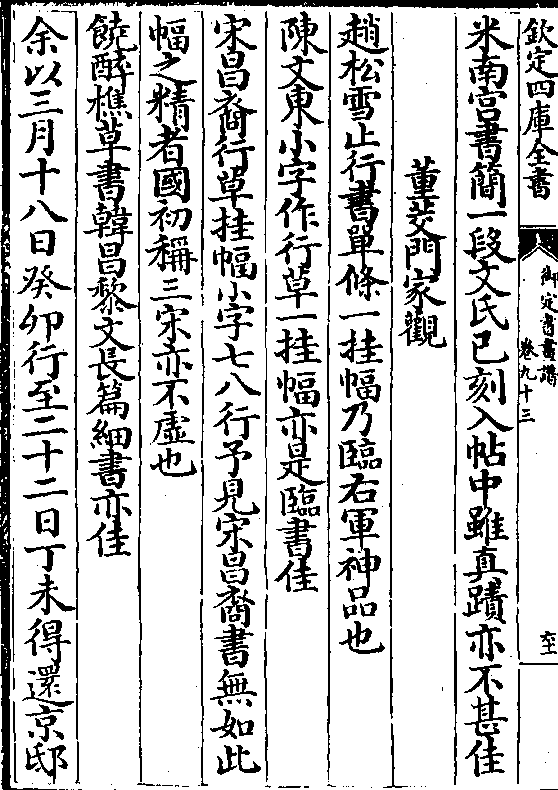 欽定四庫全書
御定書畫譜
卷九十三
米南宫書簡一段文氏已刻入帖中雖真蹟亦不甚佳
董門家觀
趙松雪止行書單條一挂幅乃臨右軍神品也
陳文東小字作行草一挂幅亦是臨書佳
宋昌裔行草挂幅小字七八行予見宋昌裔書無如此
幅之精者國初稱三宋亦不虛也
饒醉樵草書韓昌黎文長篇細書亦佳
余以三月十八日癸卯行至二十二日丁未得還京邸